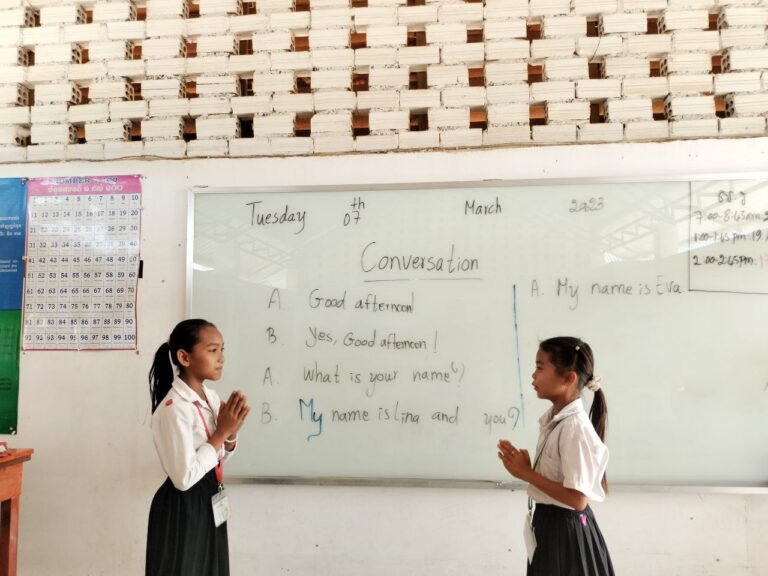 Tuesday 07th March 2023
Conversation
A. Good afternoon!
B. Yes, Good afternoon!
A. What is your name?
B. My name is Lina and you?
A. My name is Eva
1 2 3 4 5 6 7 8 9 10
11 12 13 14 15 16 17 18 19 20
21 22 23 24 25 26 27 28 29 30
31 32 33 34 35 36 37 38 39 40
41 42 43 44 45 46 47 48 49 50
51 52 53 54 55 56 57 58 59 60
61 62 63 64 65 66 67 68 69 70
71 72 73 74 75 76 77 78 79 80
81 82 83 84 85 86 87 88 89 90
91 92 93 94 95 96 97 98 99 100